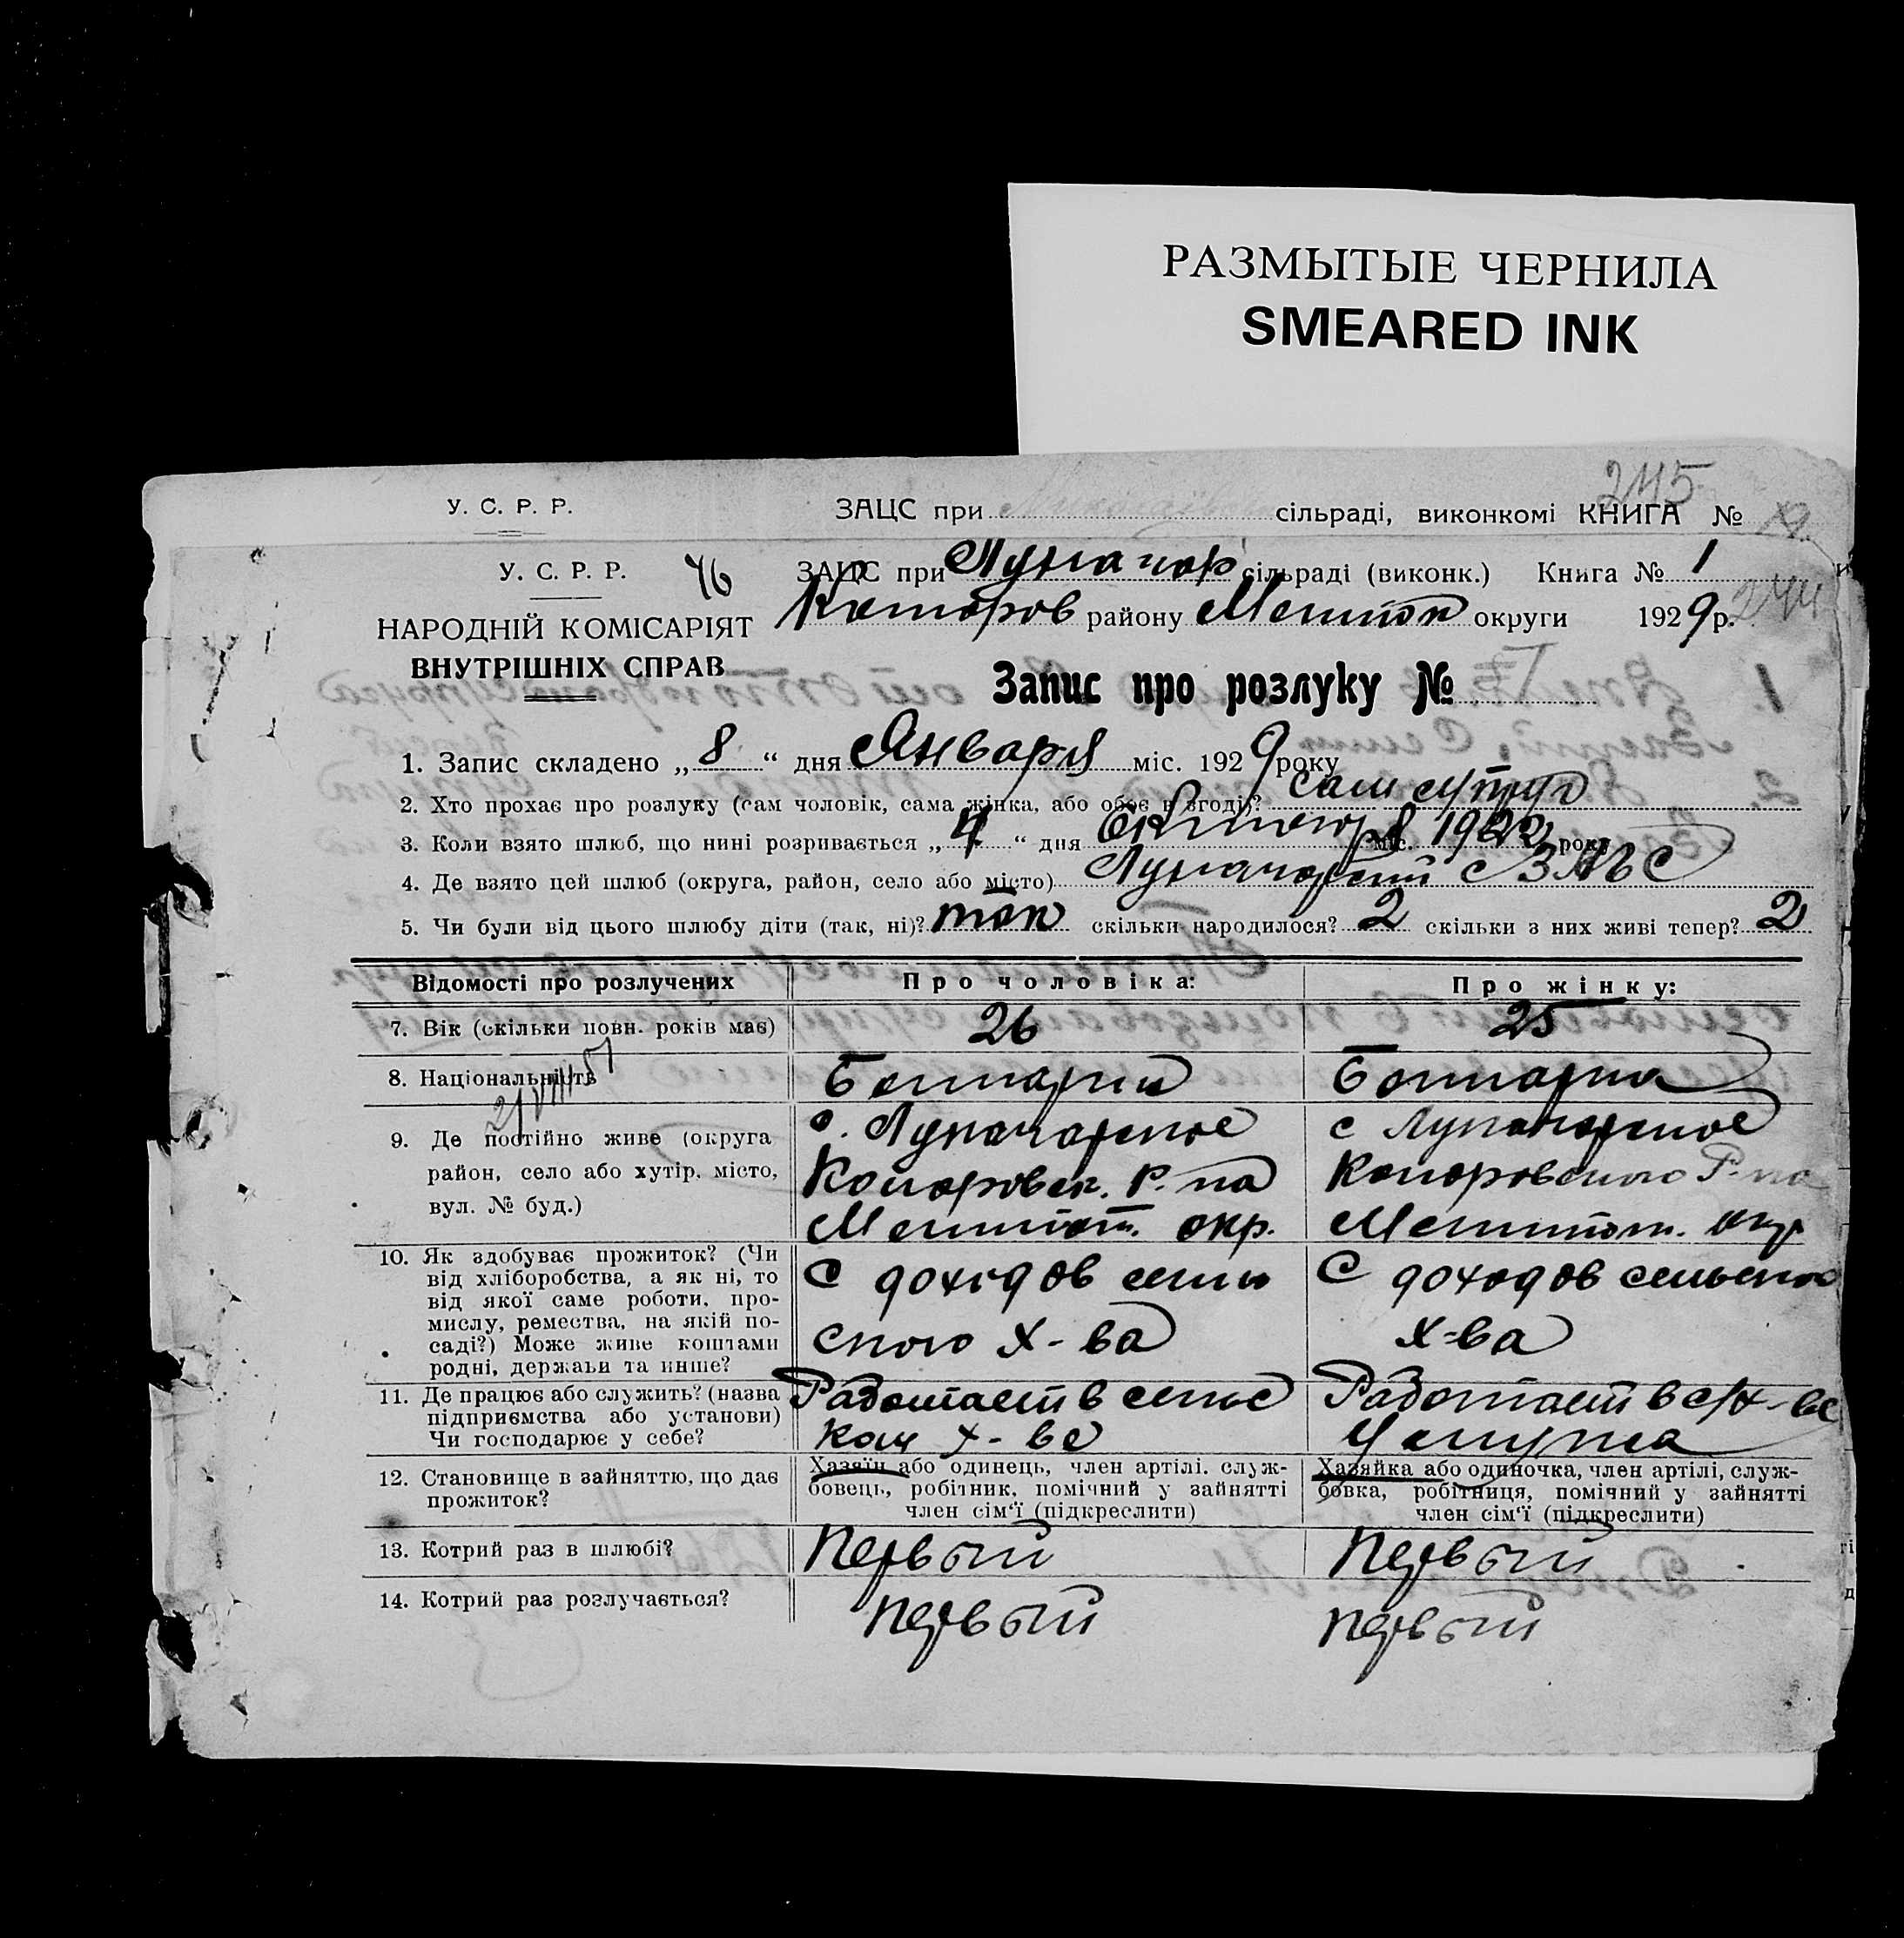 РАЗМЫТЫЕ ЧЕРНИЛА
SMEARED INK
245
У. С. Р. Р. ЗАЦС при сільраді, виконкомі КНИГА №
У. С. Р. Р. 46 ЗАЦС при Луначар сільраді (виконк.) Книга № 1
НАРОДНІЙ КОМІСАРІЯТ
ВНУТРІШНІХ СПРАВ
району Мелитоп округи 1929 р. 244
Запис про розлуку №
1. Запис складено „8“ дня Января міс. 1929 року
2. Хто прохає про розлуку (сам чоловік, сама жінка, або обоє в згоді)? сам супруг
3. Коли взято шлюб, що нині розривається „4“ дня Октября міс. 1922 року
4. Де взято цей шлюб (округа, район, село або місто) Луначарский
5. Чи були від цього шлюбу діти (так, ні)? так скільки народилося? 2 скільки з них живі тепер? 2
Відомості про розлучених Про чоловіка: Про жінку:
7. Вік (скільки повн. років має) 26 25
8. Національність Болгарин Болгарка
9. Де постійно живе (округа
район, село або хутір, місто,
вул. № буд.)
с. Луначарское
Коларовск. Р-на
Мелитоп. окр.
с Луначарское
Коларовского Р-на
Мелитоп. окр
10. Як здобуває прожиток? (Чи
від хліборобства, а як ні, то
від якої саме роботи, про-
мислу, ремества, на якій по-
саді?) Може живе коштами
родні, держави та инше?
С доходов сель
ского х-ва
С доходов сельского
х-ва
11. Де працює або служить? (назва
підприємства або установи)
Чи господарює у себе?
Работает в сельс
ком х-ве
Работает в с/х-ве
У мужа
12. Становище в зайняттю, що дає
прожиток?
Хазяїн або одинець, член артілі, служ-
бовець, робітник, помічний у зайнятті
член сім'ї (підкреслити)
Хазяйка або одиночка, член артілі, служ-
бовка, робітниця, помічний у зайнятті
член сім'ї (підкреслити)
13. Котрий раз в шлюбі? Первый Первый
14. Котрий раз розлучається? Первый Первый